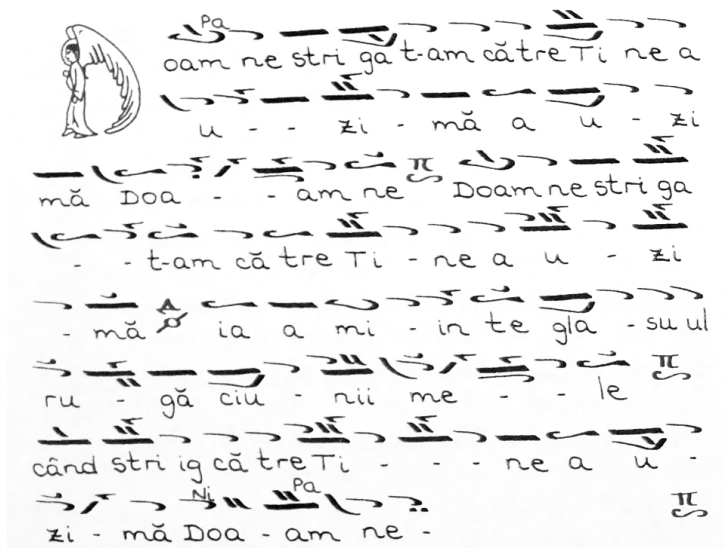 Pa
Doam ne stri ga t-am către Ti ne a
u - - zi - mă a u - zi
mă Doa - - am ne Doam ne stri ga
- - t-am că tre Ti - ne a u - zi
- mă ia a mi - in te gla - su ul
ru - gă ciu - nii me - - le
când stri ig că tre Ti - - - ne a u -
Ni Pa
zi - mă Doa - am ne -